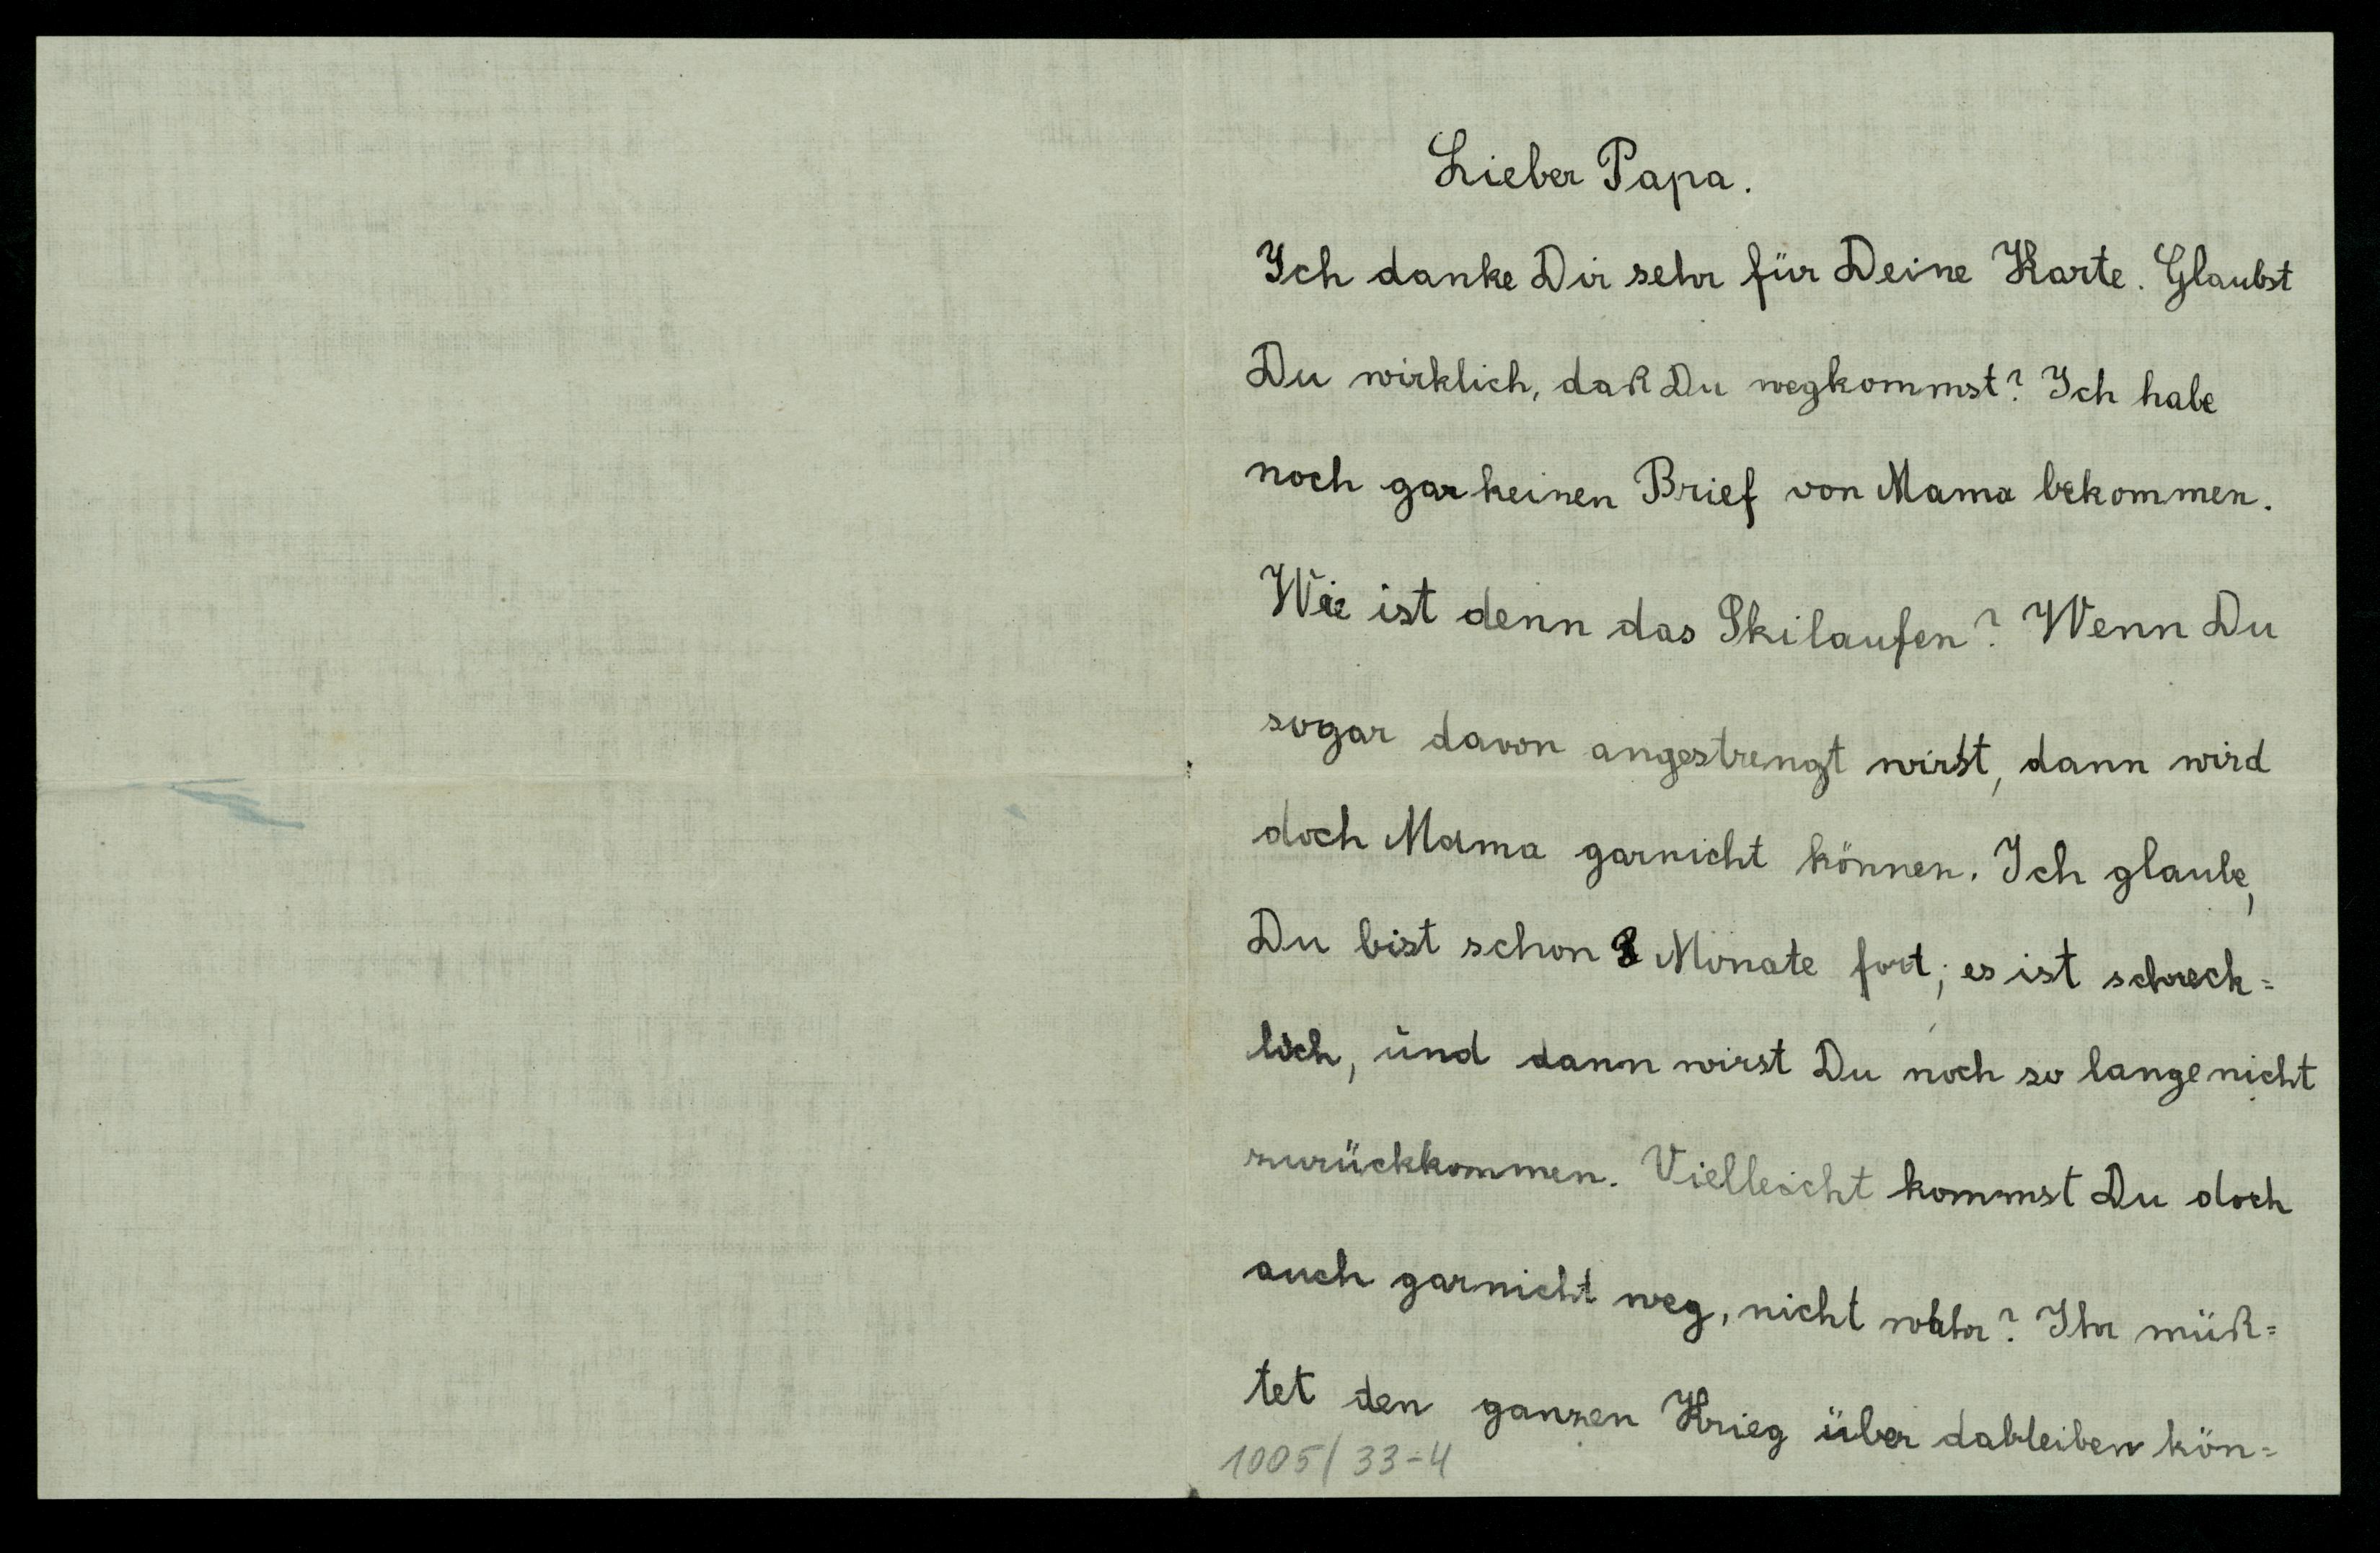 Lieber Papa.
Ich danke Dir sehr für Deine Karte. Glaubst
Du wirklich, daß Du wegkommst? Ich habe
noch gar keinen Brief von Mama bekommen.
Wie ist denn das Skilaufen? Wenn Du
sogar davon angestrengt wirst, dann wird
doch Mama garnicht können. Ich glaube,
Du bist schon Monate fort; es ist schreck=
lich, und dann wirst Du noch so lange nicht
zurückkommen. Vielleicht kommst Du doch
auch garnicht weg, nicht wahr? Ihr müß=
tet den ganzen Krieg über dableiben kön=
1005/33-4